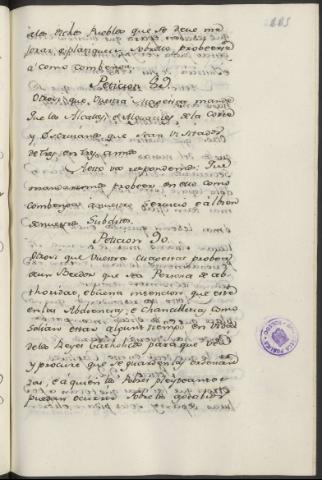 de los dichos Pueblos que se deve me
jorar, e platiquen sobre ello proberemos
a como combenga.
Peticion 89.
Otrosi que Vuestra Magestad mande
que los Alcaldes, e Alguaciles de la Corte
y Escrivanos que sean visitados
de tres, en tres, años
A esto vos respondemos, que
mandaremos proveer en ello como
combenga a nuestro servicio e al bien
de nuestros Subditos.
Peticion 90.
Otrosi que Vuestra Magestad provea
de un Veedor que sea Persona de ab
thoridad, e buena intencion que este
en las Abdiencias, e Chancillerias, como
solian estar algunt tiempo en vida
de los Reyes Catholicos para que vea
y procure que se guarden las ordenan
zas, e a quien los Pobres pleyteantes
puedan ocurrir sobre los